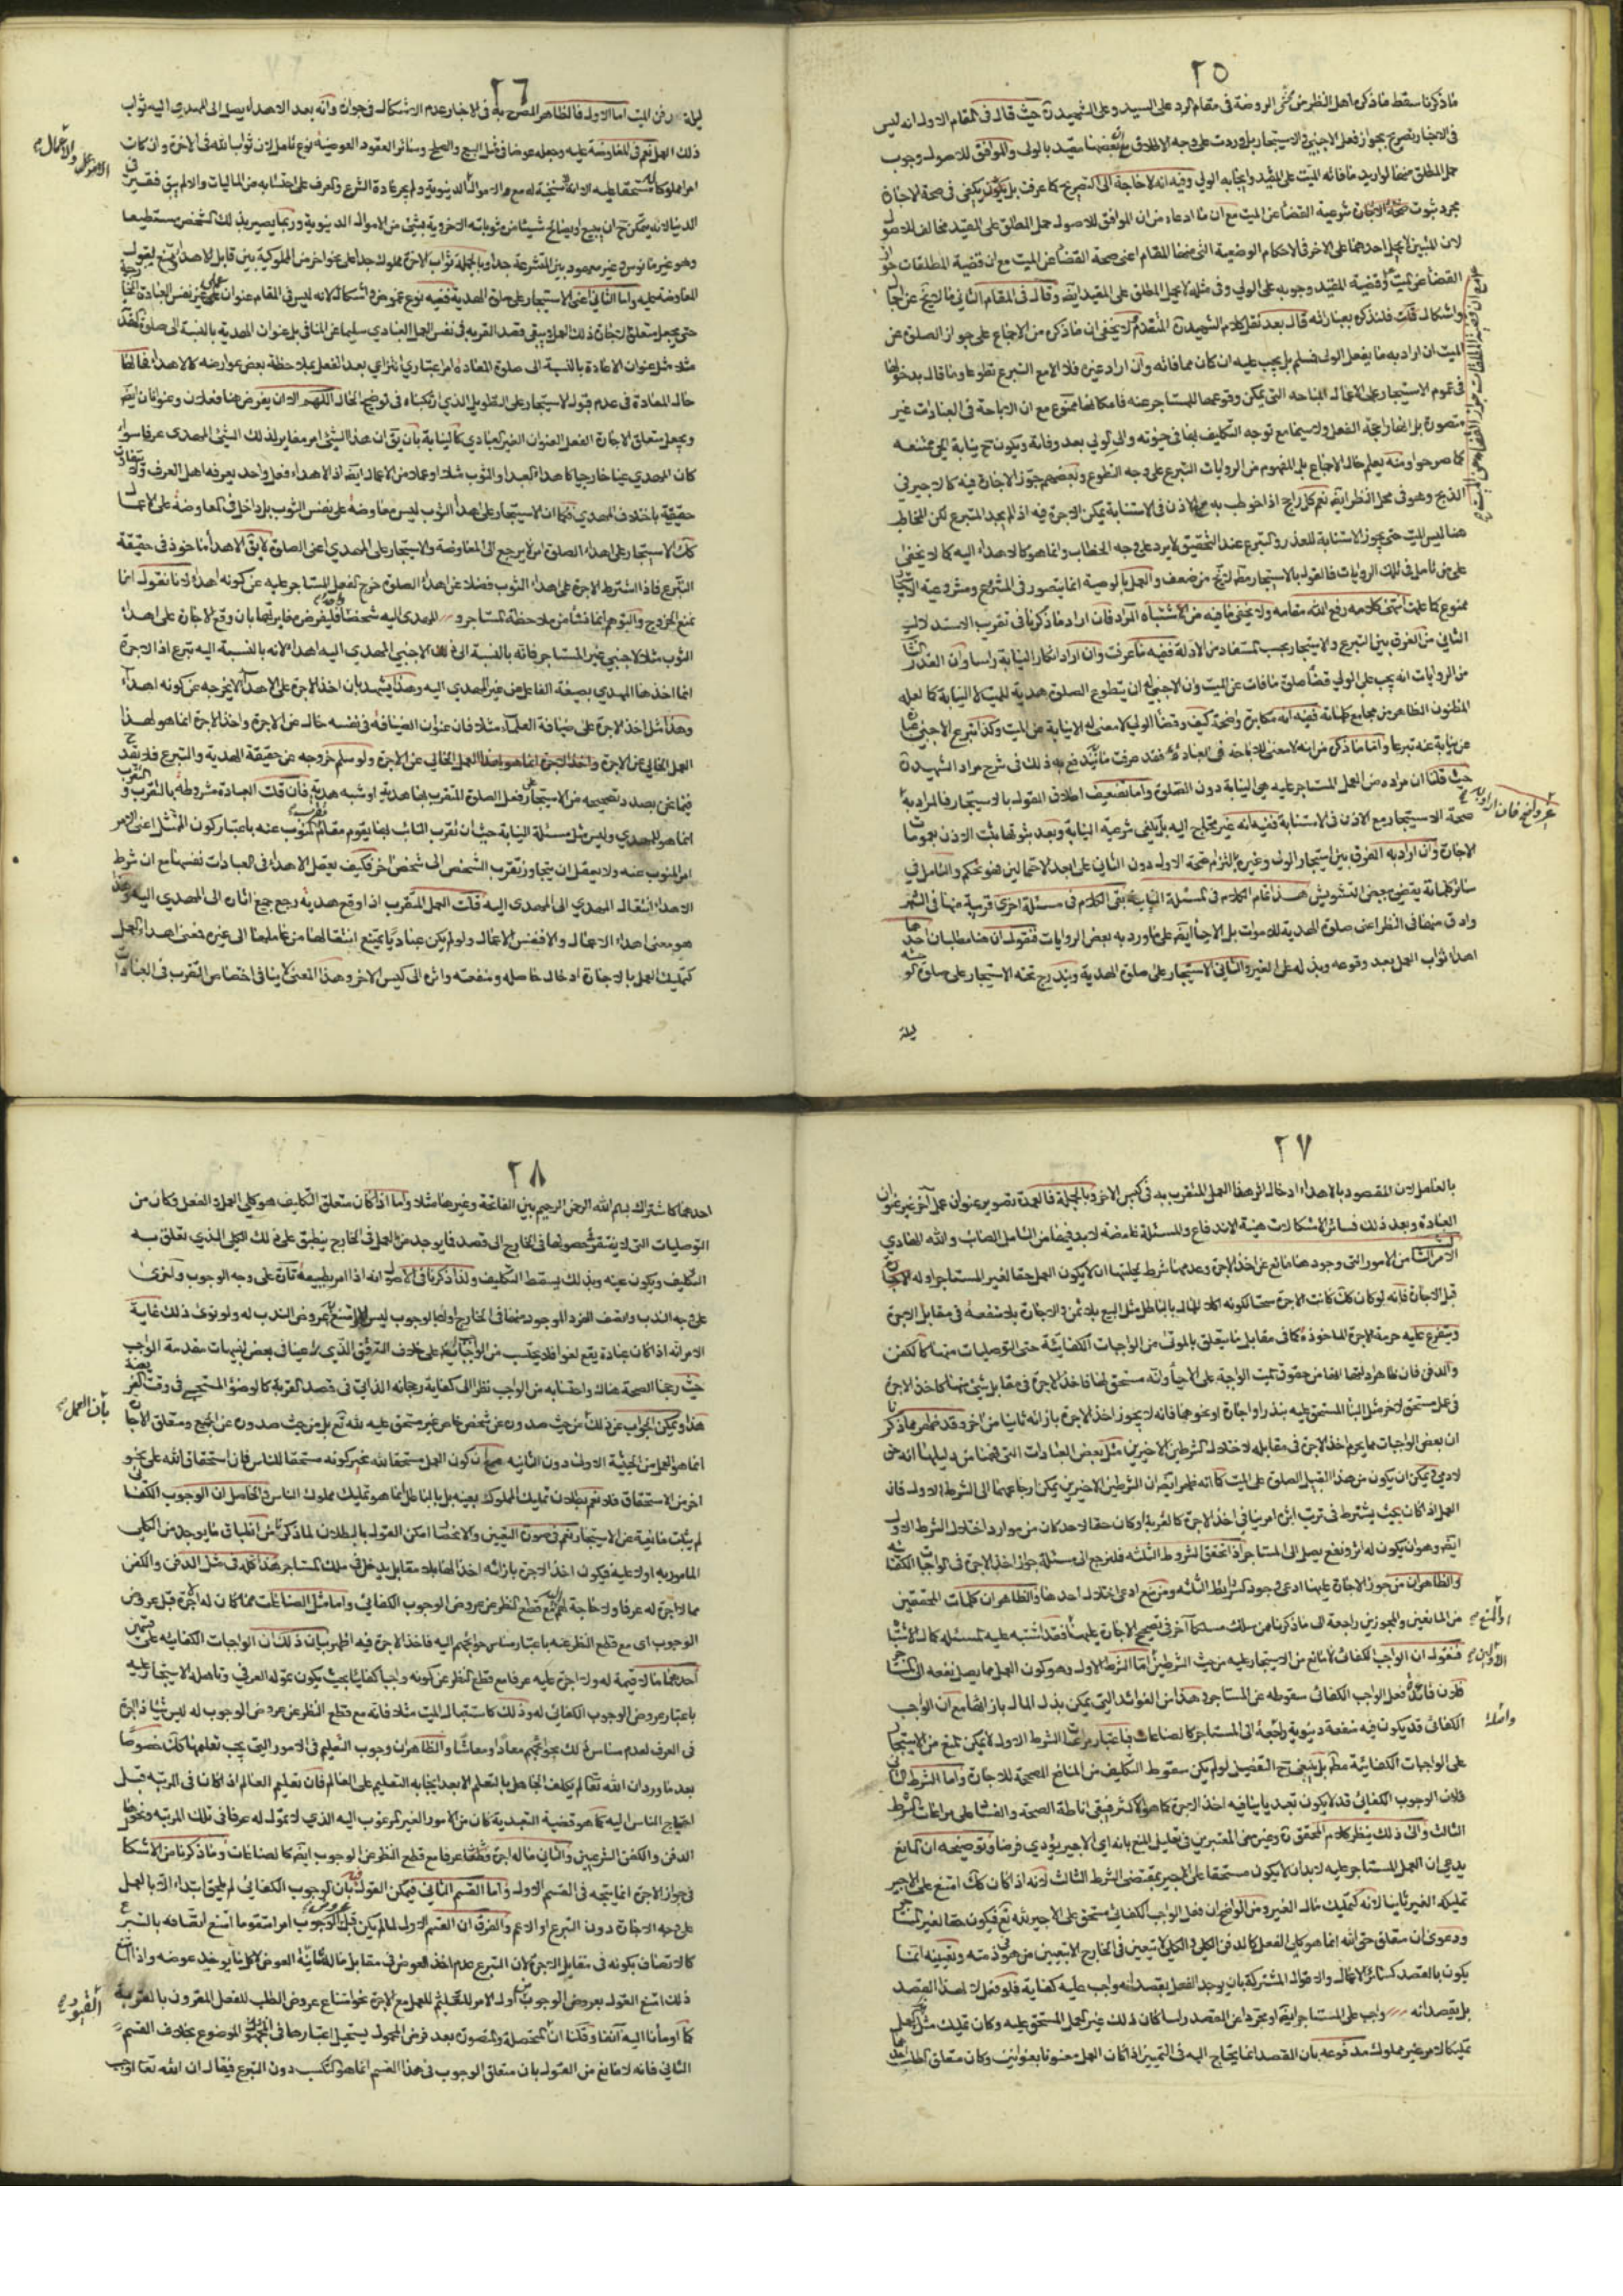 ٢٥
ما ذكرنا سقط ما ذكره اهل النظر من محشى الروضة فى مقام الرد على السيد وعلى الشهيد ره حيث قال فى المقام الاول انه ليس
فى الاخبار تصريح بجواز فعل الاجنبي ولا استيجار بل وردت على وجه الاطلاق مع ان بعضها مقيد بالولى والموافق للاصول وجوب
حمل المطلق منها لو اريد ما فاته الميت على المقيد وايجابه الولي وفيه انه لا حاجة الى التصريح كما عرفت بل يكفى فى صحة الاجارة
مجرد ثبوت شرعية القضاء عن الميت مع ان ما ادعاه من ان الموافق للاصول حمل المطلق على المقيد مخالف للاصول
لان المثبتين لا يحمل احدهما على الاخر فى الاحكام الوضعية التى منها المقام اعنى صحة القضاء عن الميت مع ان قضية المطلقات جواز
القضاء عن الميت وقضية المقيد وجوبه على الولي وفى مثله لا يحمل المطلق على المقيد ايضا وقال فى المقام الثاني ما لا يخ عن اجمال
واشكال قلت فلنذكره بعباراته قال بعد نقل كلام الشهيد ره المتقدم لا يخفى ان ما ذكره من الاجماع على جواز الصلوة عن
الميت ان اراد به ما يفعل الولى فمسلم بل يجب عليه ان كان مما فاته وان اراد غيره فلا الا مع التبرع تطوعا وما قال بدخولها
فى عموم الاستيجار على الاعمال المباحه التى يمكن وقوعها للمستاجر عنه فامكانها ممنوع مع ان الاباحة فى العبادات غير
متصورة بل انها راجحة الفعل ولا سيما مع توجه التكليف بها فى حيوته والى الولي بعد وفاته
كما صرحوا ومنه يعلم حال الاجماع بل المفهوم من الروايات التبرع على وجه التطوع وبعضهم جوز الاجارة فيه كالاجير فى
الذبح وهو فى محل النظر ايضا نعم كل راجح اذا خوطب به مع الاذن فى الاستنابة يمكن الاجرة فيه اذا لم يجد المتبرع لكن المخاطب
هنا ليس الميت حتى يجوز الاستنابة للعذر والتبرع عند التحقيق لا يرد على وجه الخطاب وانما هو كالاهداء اليه كما لا يخفى
على من تامل فى تلك الروايات فالقول بالاستيجار مطلقا لا يخ من ضعف والعمل بالوصية انما يتصور فى المشروع ومشروعية الاستيجار
ممنوع كما علمت انتهى كلامه رفع الله مقامه ولا يخفى ما فيه من الاشتباه المراد فان اراد ما ذكرنا فى تقريب الاستدلال
الثاني من الفرق بين التبرع والاستيجار بحسب المستفاد من الادلة ففيه ما عرفت وان اراد انكار النيابة راسا وان القدر الثابت
من الروايات انه يجب على الولي قضاء صلوة ما فات عن الميت وان الاجنبي له ان يتطوع الصلوة هدية للميت لا النيابة كما لعله
المظنون الظاهر من مجامع كلماته ففيه انه مكابرة واضحة كيف وقضاء الولي لا معنى له الا نيابة عن الميت وكذا تبرع الاجنبي
عن نيابة عنه تبرعا واما ما ذكره من انه لا معنى للاباحة فى العبادة فقد عرفت ما يندفع به ذلك فى شرح مراد الشهيد ره
حيث قلنا ان مراده من العمل المستاجر عليه هى النيابة دون الصلوة واما تضعيف اطلاق القول بالاستيجار فالمراد به
صحة الاستيجار مع الاذن فى الاستنابة ففيه انه غير محتاج اليه بل يكفى شرعية النيابة وبعد ثبوتها يثبت الاذن بعمومات
الاجارة وان اراد به الفرق بين استيجار الولى وغيره بالتزام صحة الاول دون الثاني على احد الاحتمالين فهو تحكم والتامل فى
سائر كلماته يقضى ببعض التشويش هذا تمام الكلام فى المسئلة النيابة بقى الكلام فى مسئلة اخرى قريبة منها فى الثمر
وادق منها فى النظر اعنى صلوة الهدية للاموات بل الاحياء ايضا على ما ورد به بعض الروايات فنقول ان هنا مطلبان احدهما
اهداء ثواب العمل بعد وقوعه وبذله على الغير والثاني الاستيجار على صلوة الهدية ويندرج تحته الاستيجار على صلوة
ليلة
٢٦
ليلة دفن الميت اما الاول فالظاهر المصرح به فى الاخبار عدم الاشكال فى جوازه وانه بعد الاهداء يصل الى المهدى اليه ثواب
ذلك العمل نعم فى المعاوضة عليه وجعله عوضا فى مثل البيع والصلح وسائر العقود العوضية نوع تامل لان ثواب الله فى الاخرة وان كان
الدنيا لانه يتمكن ح ان يبيع او يصالح شيئا من مثوباته الاخروية بشئ من الاموال الدنيوية وربما يصير بذلك الشخص مستطيعا
وهو غير مانوس وغير معهود بين المتشرعة جدا وبالجملة ثواب الاخرة مملوك جدا على نحو اخر من الملوكية بين قابل الاهداء
حتى يجعل متعلق الاجارة ذلك العمل ويبقى قصد القربة فى نفس العمل العبادي سليما عن المنافى بل عنوان الهدية بالنسبة الى صلوة الهدية
مثلا مثل عنوان الاعادة بالنسبة الى صلوة المعادة امر اعتباري انتزاعي بعد الفعل بملاحظة بعض عوارضه كالاهداء
حال المعادة فى عدم قبول الاستيجار على التطويل الذي ارتكبناه فى توضيح الحال اللهم الا ان يفرض هنا فعلان وعنوانان ايضا
ويجعل متعلق الاجارة الفعل العنوان الغير العبادي كالنيابة بان يق ان هذا الشئ امر مغاير لذلك الشئ المهدى عرفا سواء
كان المهدى عينا خارجيا كاهداء العبد او الثوب مثلا او عملا من الاعمال ايضا اذ الاهداء فعل واحد يعرفه اهل العرف ولا يتفاوت
حقيقة باختلاف المهدى فكما ان الاستيجار على اهداء الثوب ليس معاوضة على نفس الثوب بل داخل فى المعاوضة على الاعمال
كك الاستيجار على اهداء الصلوة امر لا يرجع الى المعاوضة والاستيجار على المهدى اعنى الصلوة لا يق الاهداء ماخوذ فى حقيقة
التبرع فاذا اشترط الاجرة على اهداء الثوب فضلا عن اهداء الصلوة خرج الفعل المستاجر عليه عن كونه اهداء لانا نقول انما
نمنع الخروج والتوهم انما نشأ من ملاحظة المستاجر و المهدى اليه شخصا واحدا فليفرض مغايرتهما بان وقع الاجارة على اهداء
الثوب مثلا لاجنبي غير المستاجر فانه بالنسبة الى ذلك الاجنبي المهدى اليه اهداء لانه بالنسبة اليه تبرع اذ الاجرة
انما اخذها المهدي بصيغة الفاعل من غير المهدى اليه وهذا يشهد بان اخذ الاجرة على الاهداء لا يخرجه عن كونه اهداء
وهذا مثل اخذ الاجرة على ضيافة العلماء مثلا فان عنوان الضيافة فى نفسه خال عن الاجرة واخذ الاجرة انما هو لهذا
العمل الخالي عن الاجرة ولو سلم خروجه عن حقيقة الهدية والتبرع فلا يقدح
فيما نحن بصدد تصحيحه من الاستيجار على فعل الصلوة المتقرب بها هدية او شبه هدية فان قلت العبادة مشروطة بالتقرب والتقرب
انما هو للمهدي وليس مثل مسئلة النيابة حيث ان تقرب النائب بها يقوم مقام تقرب المنوب عنه باعتبار كون الممتثل اعنى الامر
امر المنوب عنه ولا يعقل ان يتجاوز تقرب الشخص الى شخص اخر فكيف يعقل الاهداء فى العبادات نفسها مع ان شرط
الاهداء انتقال المهدى الى المهدى اليه قلت العمل المتقرب اذا وقع هدية رجع جميع اثاره الى المهدى اليه وهذا
هو معنى اهداء الاعمال والا فنفس الاعمال ولو لم يكن عباديا يمتنع انتقالها من عاملها الى غيره فمعنى اهداء العمل
كتمليك العمل بالاجارة ادخال حاصله ومنفعته واثره الى كيس الاخر وهذا المعنى لا ينافى اختصاص التقرب فى العبادات
٢٧
بالعامل لان المقصود بالاهداء ادخال اثر هذا العمل المتقرب به فى كيس الاخر وبالجملة فالعمدة تصوير عنوان عمل آخر غير عنوان
العبادة وبعد ذلك فسائر الاشكالات هينة الاندفاع والمسئلة غامضة لا بد فيها من التامل الصائب والله الهادي
الامر الثالث من الامور التى وجودها مانع عن اخذ الاجرة وعدمها شرط لحليتها ان لا يكون العمل حقا لغير المستاجر اوله
قبل الاجارة فانه لو كان كك كانت الاجرة سحتا لكونه اكلا للمال بالباطل مثل البيع بلا ثمن والاجارة بلا منفعة فى مقابل الاجرة
ويتفرع عليه حرمة الاجرة الماخوذة كما فى مقابل ما يتعلق بالموتى من الواجبات الكفائية حتى التوصليات منها كالكفن
والدفن فان ظاهر ادلتها انها من حقوق الميت الواجبة على الاحياء وانه مستحق لها فاخذ الاجرة فى مقابل شئ منها كاخذ الاجرة
فى عمل مستحق لاخر مثل البناء المستحق عليه بنذر او اجارة او نحوهما فانه لا يجوز اخذ الاجرة بازائه ثانيا من اخر وقد ظهر مما ذكرنا
ان بعض الواجبات مما يحرم اخذ الاجرة فى مقابله لاختلال الشرطين الاخيرين مثل بعض العبادات التى فهمنا من دليلها انه حق
لادمي ويمكن ان يكون من هذا القبيل الصلوة على الميت كما انه ظهر ايضا ان الشرطين الاخيرين يمكن ارجاعهما الى الشرط الاول فان
العمل اذا كان بحيث يشترط فى ترتب اثره امر ينافى اخذ الاجرة كالقربة او كان حقا لاحد كان من موارد اختلال الشرط الاول
ايضا وهو ان يكون له اثر ونفع يصل الى المستاجر اذا تحقق الشروط الثلثه فلنرجع الى مسئلة جواز اخذ الاجرة فى الواجبات الكفائية
والظاهر ان من جوز الاجارة عليها ادعى وجود الشرائط الثلثه ومن منع ادعى اختلال احدها والظاهر ان كلمات المحققين
من المانعين والمجوزين راجعة الى ما ذكرنا فمن سلك مسلكا آخر فى تصحيح الاجارة عليها فقد اشتبه عليه المسئله كمال الاشتباه
فنقول ان الواجب الكفائى لا مانع من الاستيجار عليه من حيث الشرطين اما الشرط الاول وهو كون العمل مما يصل نفعه الى المستاجر
فلان فائدة فعل الواجب الكفائى سقوطه عن المستاجر وهذا من الفوائد التى يمكن بذل المال بازائها مع ان الواجب
الكفائى قد يكون فيه منفعة دنيوية راجعة الى المستاجر كالصناعات فباعتبار مراعات الشرط الاول لا يمكن المنع من الاستيجار
على الواجبات الكفائية مطلقا بل ينبغى ح التفصيل لو لم يكن سقوط التكليف من المنافع المصححة للاجارة واما الشرط الثاني
فلان الوجوب الكفائى قد لا يكون تعبديا ينافيه اخذ الاجرة كما هو الاكثر فيبقى اناطة الصحة والفساد على مراعات الشرط
الثالث والى ذلك ينظر كلام المحقق ره وغيره من المعتبرين فى تعليل المنع بانه اى الاجير يؤدي فرضا وتوضيحه ان المانع
يدعى ان العمل المستاجر عليه لا بد ان لا يكون مستحقا على الاجير بمقتضى الشرط الثالث لانه اذا كان كك امتنع على الاجير
تمليكه الغير ثانيا لانه كتمليك مال الغير ومن الواضح ان فعل الواجب الكفائى مستحق على الاجير لله تع فيكون حقا لغير المستاجر
ودعوى ان متعلق حق الله انما هو كلى الفعل كالدفن الكلى والكلى لا يتعين فى الخارج الا بتعيين من هو فى ذمته وتعيينه انما
يكون بالقصد كسائر الاعمال والاقوال المشتركة بان يوجد الفعل بقصد انه واجب عليه كفاية فلو فعل لا لهذا القصد
بل بقصد انه واجب على المستاجر ايضا او مجردا عن القصد راسا كان ذلك غير العمل المستحق عليه وكان تمليك مثل هذا العمل
تمليكا لامر غير مملوك مدفوعه بان القصد انما يحتاج اليه فى التمييز اذا كان العمل معنونا بعنوانين وكان متعلق الطلب احدهما
٢٨
احدهما كاشتراك بسم الله الرحمن الرحيم بين الفاتحة وغيرها مثلا واما اذا كان متعلق التكليف هو كلى العمل والفعل وكان من
التوصليات التى لا يفتقر حصولها فى الخارج الى قصد فما يوجد من العمل فى الخارج ينطبق على ذلك الكلى الذي تعلق به
التكليف ويكون عينه وبذلك يسقط التكليف ولذا ذكرنا فى الاصول انه اذا امر بطبيعة تارة على وجه الوجوب واخرى
على وجه الندب واتصف الفرد الموجود منها فى الخارج اولا بالوجوب ليس عروض الندب له ولو نوى ذلك غاية
الامر انه اذا كان عبادة يقع لغوا فلا يحتسب من الواجبات على خلاف التدقيق الذي ادعينا فى بعض تنبيهات مقدمة الواجب
حيث رجحنا الصحة هناك واحتسابه من الواجب نظرا الى كفاية رجحانه الذاتي فى قصد القربة كالوضوء المستحبى فى وقت الفريضة
هذا ويمكن الجواب عن ذلك من حيث صدوره عن شخص خاص غير مستحق عليه لله تع بل من حيث صدوره عن الجميع ومتعلق الاجارة
انما هو العمل من الحيثية الاولى دون الثانيه مع ان كون العمل مستحقا لله غير كونه مستحقا للناس فان استحقاق الله على نحو
اخر من الاستحقاق فلا نعم بطلان تمليك المملوك بعينه بل بالباطل انما هو تمليك مملوك الناس والحاصل ان الوجوب الكفائى
لم يثبت مانعية عن الاستيجار نعم فى صورة التعيين والانحصار امكن القول بالبطلان لما ذكرنا من انطباق ما يوجد من الكلى
المامور به اولا عليه فيكون اخذ الاجرة بازائه اخذا لها بلا مقابل يدخل فى ملك المستاجر هذا كله فى مثل الدفن والكفن
مما لا اجرة له عرفا ولا حاجة اليه مع قطع النظر عن عروض الوجوب الكفائى واما مثل الصناعات مما كان له اجرة قبل عروض
الوجوب اى مع قطع النظر عنه باعتبار مساس حوائجهم اليه فاخذ الاجرة فيه اظهر بيان ذلك ان الواجبات الكفائيه على قسمين
احدهما ما لا قيمة له ولا اجرة عليه عرفا مع قطع النظر عن كونه واجبا كفائيا بحيث يكون تموله العرفى وتاهله الاستيجار عليه
باعتبار عروض الوجوب الكفائى له وذلك كاستقبال الميت مثلا فانه مع قطع النظر عن عروض الوجوب له ليس شيئا ذا اجرة
فى العرف لعدم مساس ذلك بحوائجهم معادا ومعاشا والظاهر ان وجوب التعليم فى الامور التى يجب تعلمها كك خصوصا
بعد ما ورد ان الله تعالى لم يكلف الجاهل بالتعلم الا بعد ايجابه التعليم على العالم فان تعليم العالم اذا كان فى المرتبة قبل
احتياج الناس اليه كما هو قضية التعبدية كان من الامور الغير المرغوب اليه الذي لا تمول له عرفا فى تلك المرتبة ونحوها
الدفن والكفن الشرعيين والثاني ماله اجرة وثمنا عرفا مع قطع النظر عن الوجوب ايضا كالصناعات وما ذكرنا من الاشكال
فى جواز الاجرة انما يتجه فى القسم الاول واما القسم الثاني فيمكن القول فيه بان الوجوب الكفائى لم يلحق ابتداء الا بالعمل
على وجه الاجارة دون التبرع او الاعم والفرق ان القسم الاول لما لم يكن قبل عروض الوجوب امرا متقوما امتنع اتصافه بالتبرع
كالاتصاف بكونه فى مقابل الاجرة لان التبرع عدم اخذ العوض فى مقابل ماله شانية العوض لا كلما لا يوجد عوضه واذا امتنع
ذلك امتنع القول بعروض الوجوب من اول الامر للتعليم للعمل مع الاجرة نحو امتناع عروض الطلب للفعل المقرون بالقربة
كما اومأنا اليه آنفا وقلنا ان المتحصلة والمتصورة بعد فرض المحمول يستحيل اعتبارها فى الموضوع بخلاف القسم
الثاني فانه لا مانع من القول بان متعلق الوجوب فى هذا القسم انما هو التكسب دون التبرع فيقال ان الله تعالى اوجب